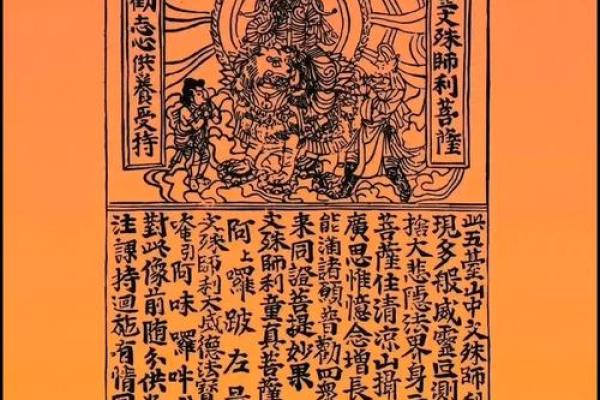 文殊師利菩薩
勸志心供養受持
此五臺山中文殊師利
現多般威靈叵測
捨大悲隱法界身
菩薩住清涼山攝
廣思惟憶念增長
能滿諸願普勸四眾
來同證菩提妙果
文殊師利童真菩薩
阿上囉跛左
文殊師利大威德法寶
唵引阿味囉吽
對此像前随分供養
注課持迴施有情同